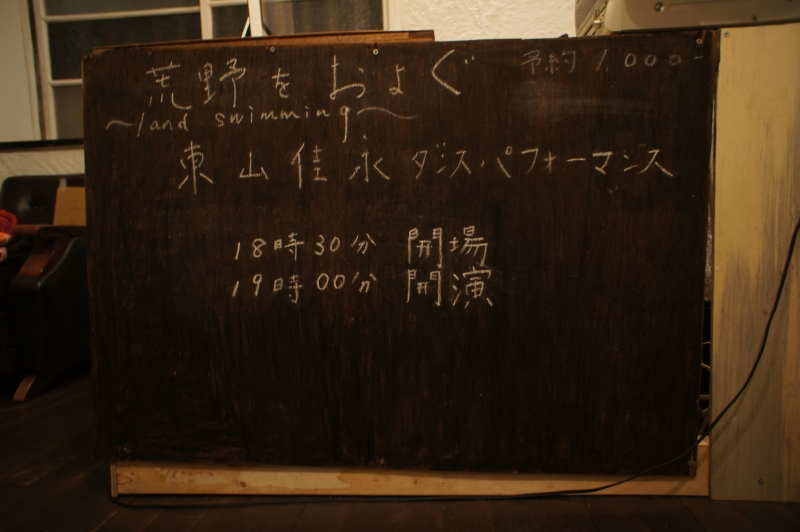 荒野をおよぐ
予約1000-
～land swimming～
東山佳永ダンスパフォーマンス
18時30分 開場
19時00分 開演